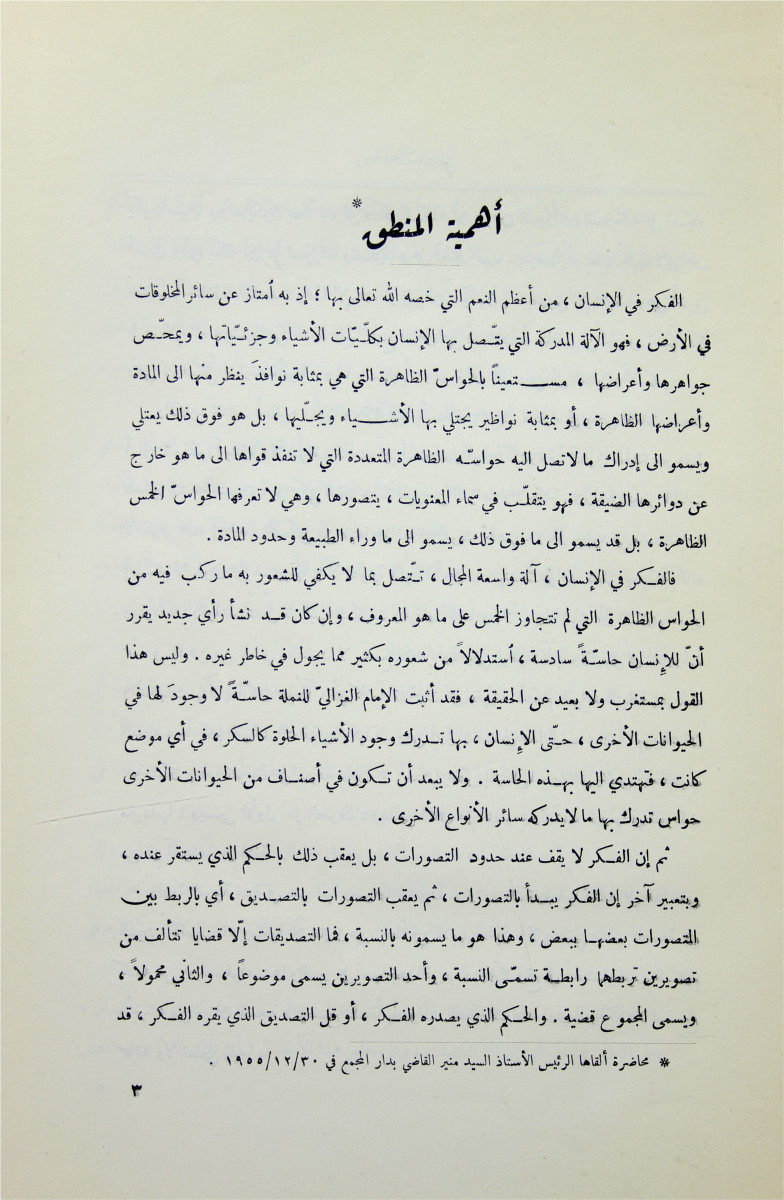 أهمية المنطق*
الفكر في الإنسان ، من أعظم النعم التي خصه الله تعالى بها ؛ إذ به أمتاز عن سائر المخلوقات
في الأرض ، فهو الآلة المدركة التي يتّـصل بها الإنسان بكلّـيّات الأشياء وجزئـيّاتها ، ويمحّـص
جواهرها وأعراضها ، مستعيناً بالحواسّ الظاهرة التي هي بمثابة نوافذَ ينظر منها الى المادة
وأعراضها الظاهرة ، أو بمثابة نواظير يجتلي بها الأشياء ويجـلّيها ، بل هو فوق ذلك يعتلي
ويسمو الى إدراك ما لاتصل اليه حواسّـه الظاهرة المتعددة التي لا تنفذ قواها الى ما هو خارج
عن دوائرها الضيقة ، فهو يتقلّـب في سماء المعنويات ، يتصورها ، وهي لا تعرفها الحواسّ الخمس
الظاهرة ، بل قد يسمو الى ما فوق ذلك ، يسمو الى ما وراء الطبيعة وحدود المادة .
فالفكر في الإنسان ، آلة واسعة المجال ، تـتّصل بما لا يكفي للشعور به ما ركب فيه من
الحواس الظاهرة التي لم تتجاوز الخمس على ما هو المعروف ، وإن كان قد نشأ رأي جديد يقرر
أنّ للإنسان حاسّـةً سادسة ، أستدلالاً من شعوره بكثير مما يجول في خاطر غيره . وليس هذا
القول بمستغرب ولا بعيد عن الحقيقة ، فقد أثبت الإمام الغزاليّ للنملة حاسّـةً لا وجودَ لها في
الحيوانات الأخرى ، حـتّى الإنسان ، بها تدرك وجود الأشياء الحلوة كالسكر ، في أي موضع
كانت ، فتهتدي اليها بهذه الحاسة . ولا يبعد أن تكون في أصناف من الحيوانات الأخرى
حواس تدرك بها ما لايدركه سائر الأنواع الأخرى .
ثم إن الفكر لا يقف عند حدود التصورات ، بل يعقب ذلك بالحكم الذي يستقر عنده ،
وبتعبير آخر إن الفكر يبدأ بالتصورات ، ثم يعقب التصورات بالتصديق ، أي بالربط بين
المتصورات بعضها ببعض ، وهذا هو ما يسمونه بالنسبة ، فما التصديقات إلّا قضايا تتألف من
تصويرين تربطهما رابطة تسمّـى النسبة ، وأحد التصويرين يسمى موضوعاً ، والثاني محمولاً ،
ويسمى المجموع قضية . والحكم الذي يصدره الفكر ، أو قل التصديق الذي يقره الفكر ، قد
* محاضرة ألقاها الرئيس الأستاذ السيد منير القاضي بدار المجمع في ٣٠/١٢/١٩٥٥ .
٣